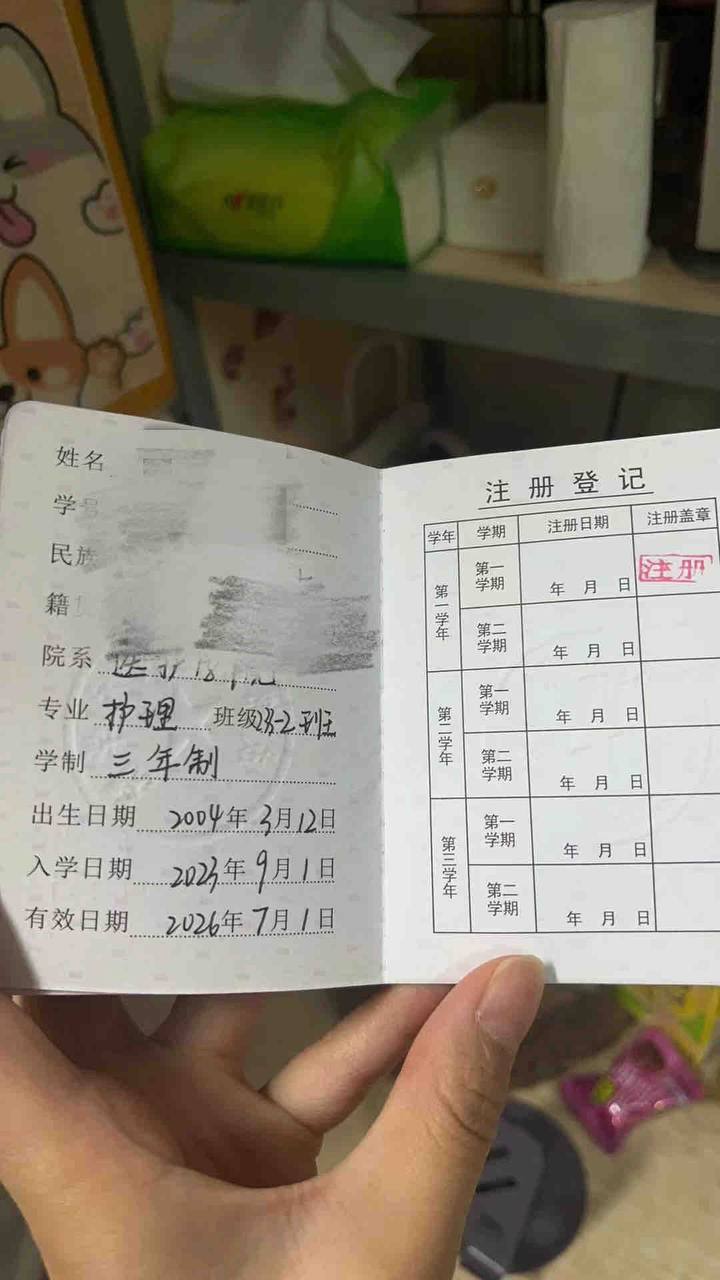 姓名
学号
民族
籍
院系 医护
专业 护理 班级23-2班
学制 三年制
出生日期 2004年3月12日
入学日期 2023年9月1日
有效日期 2026年7月1日
注册登记
学年 学期 注册日期 注册盖章
第一学年 第一学期 年 月 日 注册
第二学期 年 月 日
第二学年 第一学期 年 月 日
第二学期 年 月 日
第三学年 第一学期 年 月 日
第二学期 年 月 日